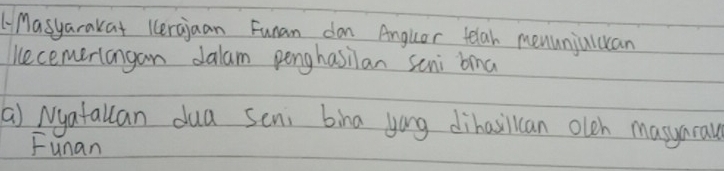 1. Masyarakat Kerajaan Funan dan Angkor telah menunjukkan
kecemerlangan dalam penghasilan seni bina
a) Nyatakan dua seni bina yang dihasilkan oleh masyarak
Funan